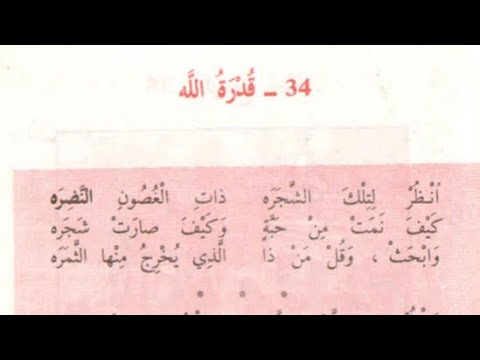 34 ـ قُدْرَةُ اللَّه
اُنْظُرْ لِتِلْكَ الشَّجَرَه ذَاتِ الْغُصُونِ النَّضِرَه
كَيْفَ نَمَتْ مِنْ حَبَّةٍ وَكَيْفَ صارَتْ شَجَرَه
وَابْحَثْ ، وَقُلْ مَنْ ذَا الَّذِي يُخْرِجُ مِنْها الثَّمَرَه